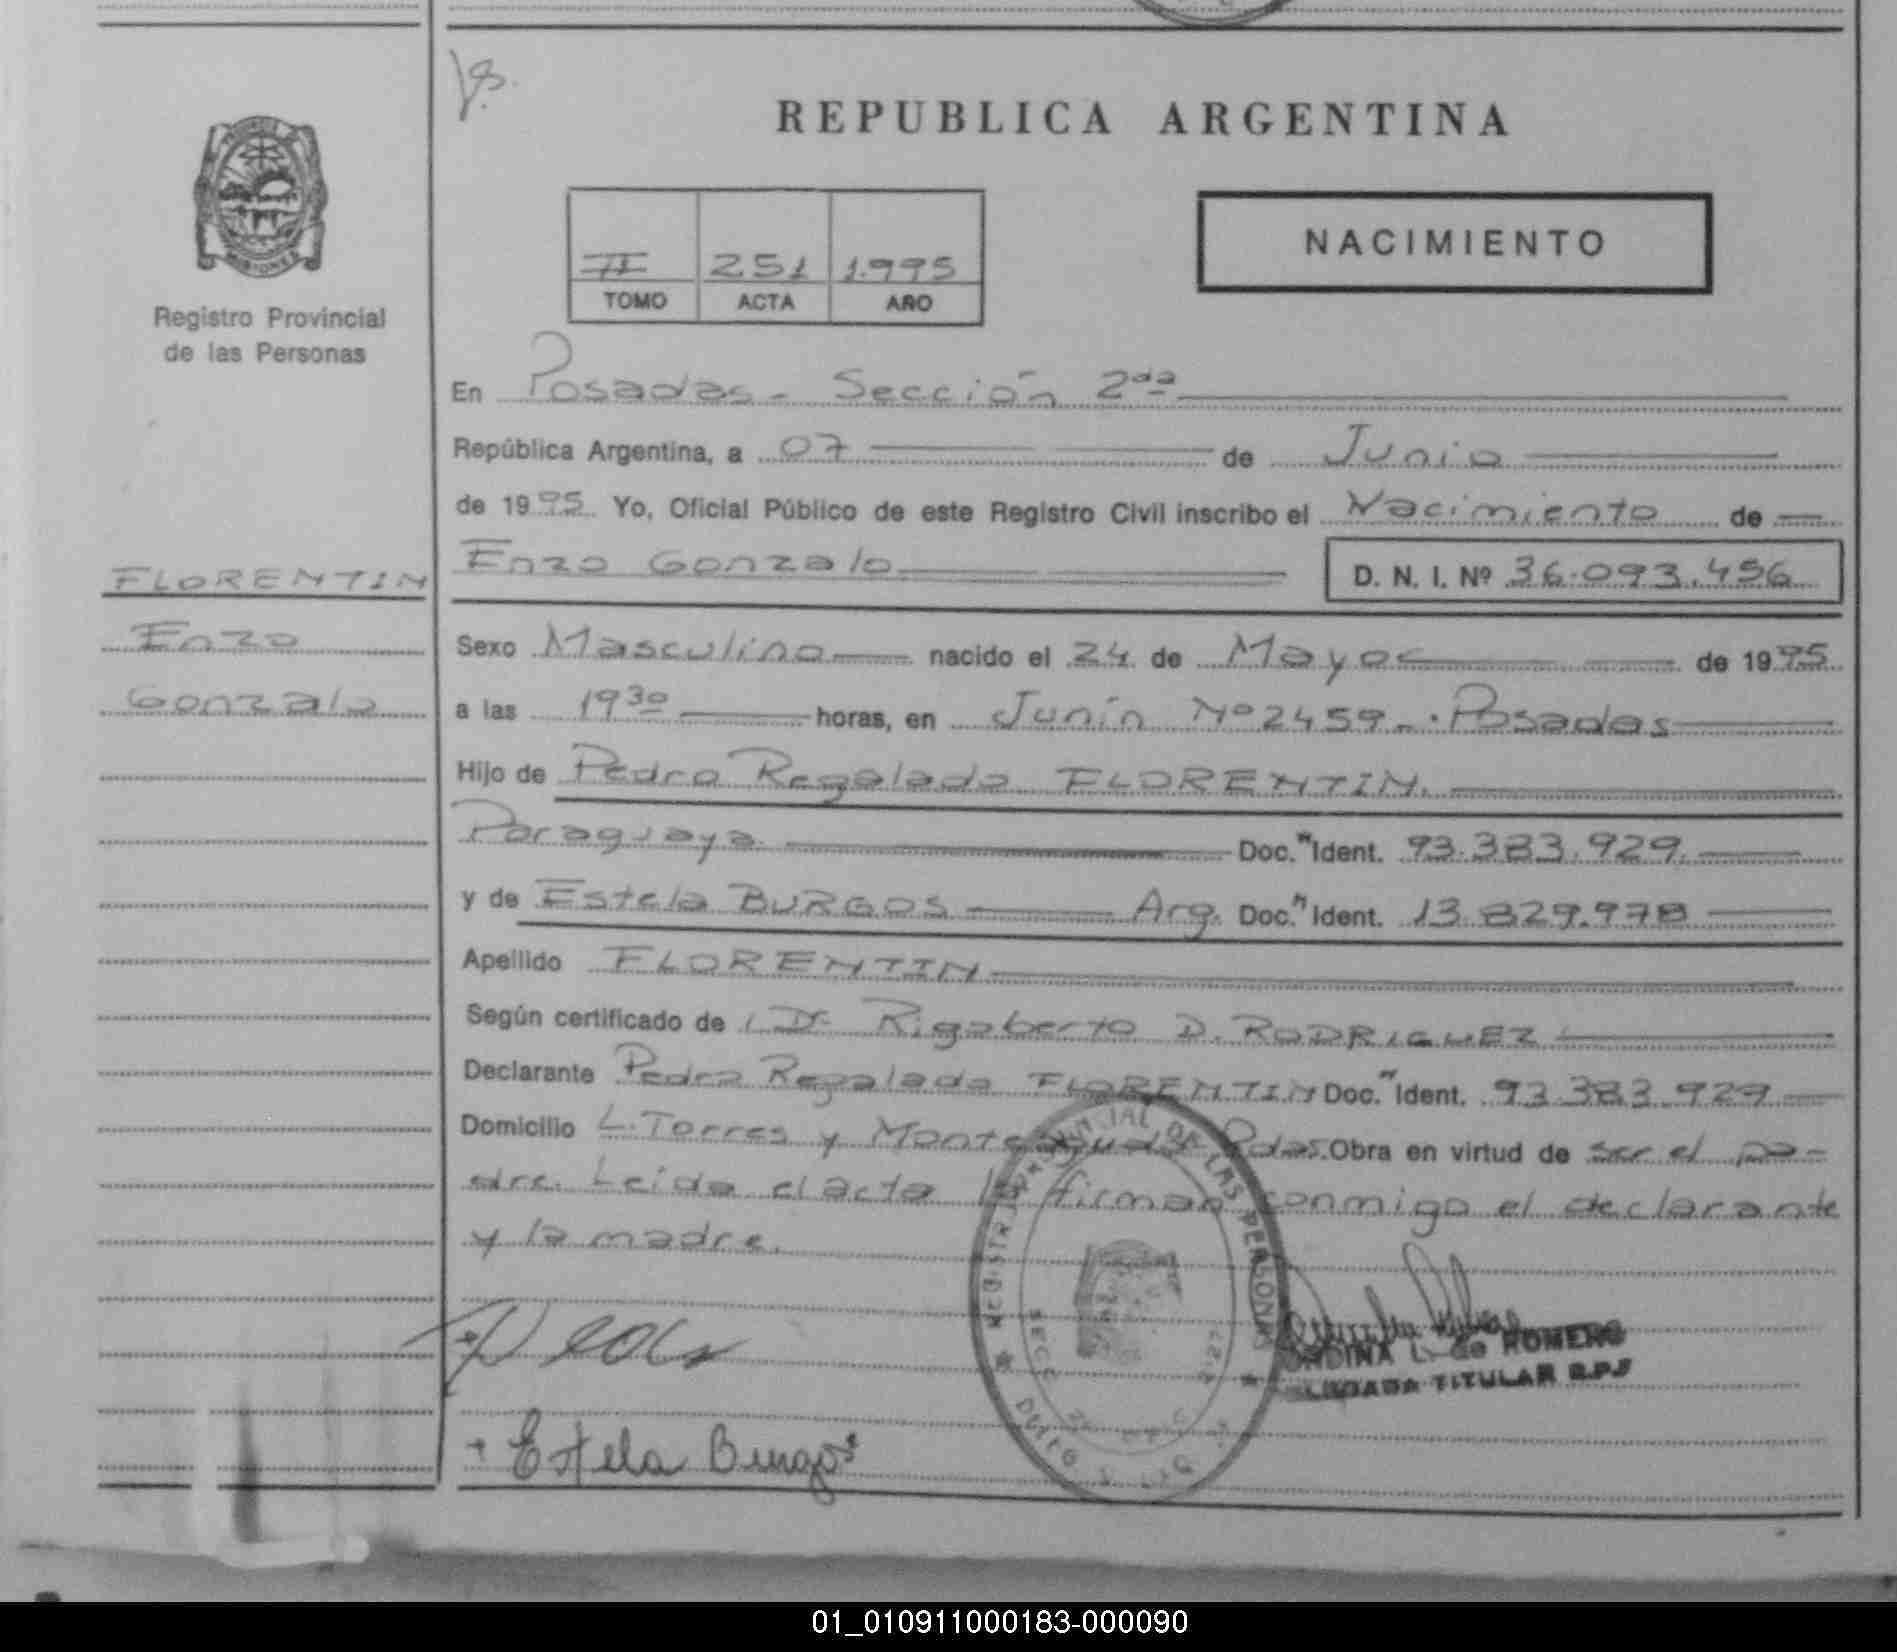 REPUBLICA ARGENTINA
MISIONES
Registro Provincial
de las Personas
NACIMIENTO
II 251 1.995
TOMO ACTA AÑO
En Posadas - Sección 2da
República Argentina, a 07 de Junio
de 1995 Yo, Oficial Público de este Registro Civil inscribo el Nacimiento de
Enzo Gonzalo D. N. I. Nº 36.093.456
FLORENTIN
Enzo
Gonzalo
Sexo Masculino nacido el 24 de Mayo de 1995
a las 19 30 horas, en Junín Nº 2459 - Posadas
Hijo de Pedro Regalado FLORENTIN.
Paraguaya Doc. Ident. 93.383.929
y de Estela BURGOS Arg. Doc. Ident. 13.829.978
Apellido FLORENTIN
Según certificado de Dr. Rigoberto D. RODRIGUEZ
Declarante Pedro Regalado FLORENTIN Doc. Ident. 93.383.929
Domicilio L. Torres y Monteagudo Pdas. Obra en virtud de ser el pa-
dre. Leida el acta la firman conmigo el declarante
y la madre.
REGISTRO PROVINCIAL DE LAS PERSONAS
L. de ROMERO
TITULAR R.P.
Estela Burgos
01_010911000183-000090